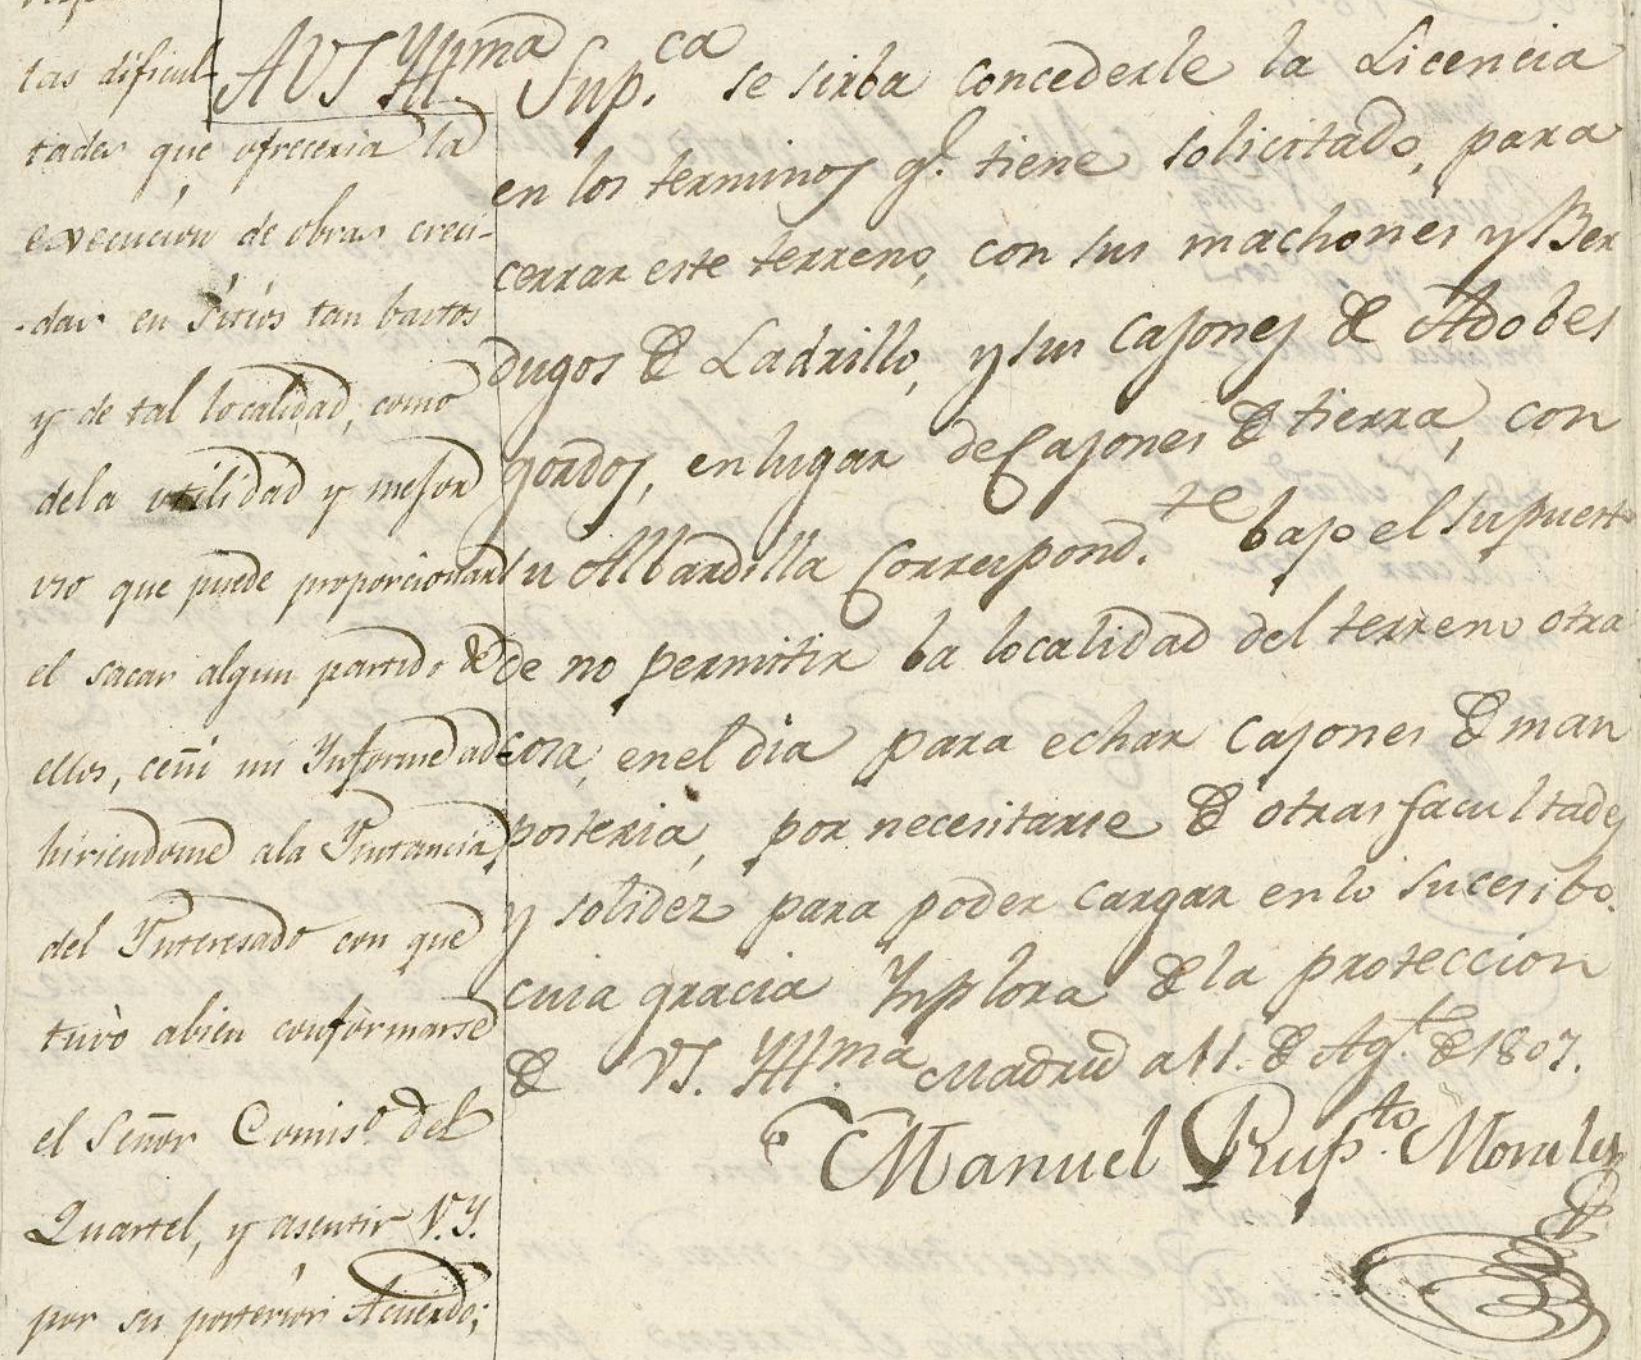 tas dificul-
tades que ofreceria la
execucion de obras creci-
-das en Sitios tan bastos
y de tal localidad, como
dela utilidad y mejor
uso que puede proporcionar
el sacar algun partido de
ellos, ceñi mi Informe ad-
hiriendome ala Instancia
del Interesado con que
tuvo abien conformarse
el Señor Comiso. del
Quartel, y asentir V.Y.
por su posterior Acuerdo;
A VS Yllma Supca. se sirba concederle la Licencia
en los terminos q.e tiene solicitado, para
cerrar este terreno, con sus machones y Ber
dugos de Ladrillo, y sus Cajones de Adobes
gordos, en lugar de Cajones de tierra, con
su Albardilla Correspond.te bajo el supuesto
de no permitir la localidad del terreno otra
cosa, en el dia para echar Cajones de man
posteria, por necesitarse de otras facultades
y solidéz para poder cargar en lo sucesibo.
cuia gracia Ynplora de la proteccion
de VS. Yllma. Madrid a 11. de Ag.to de 1807.
Manuel Rup.to Morales